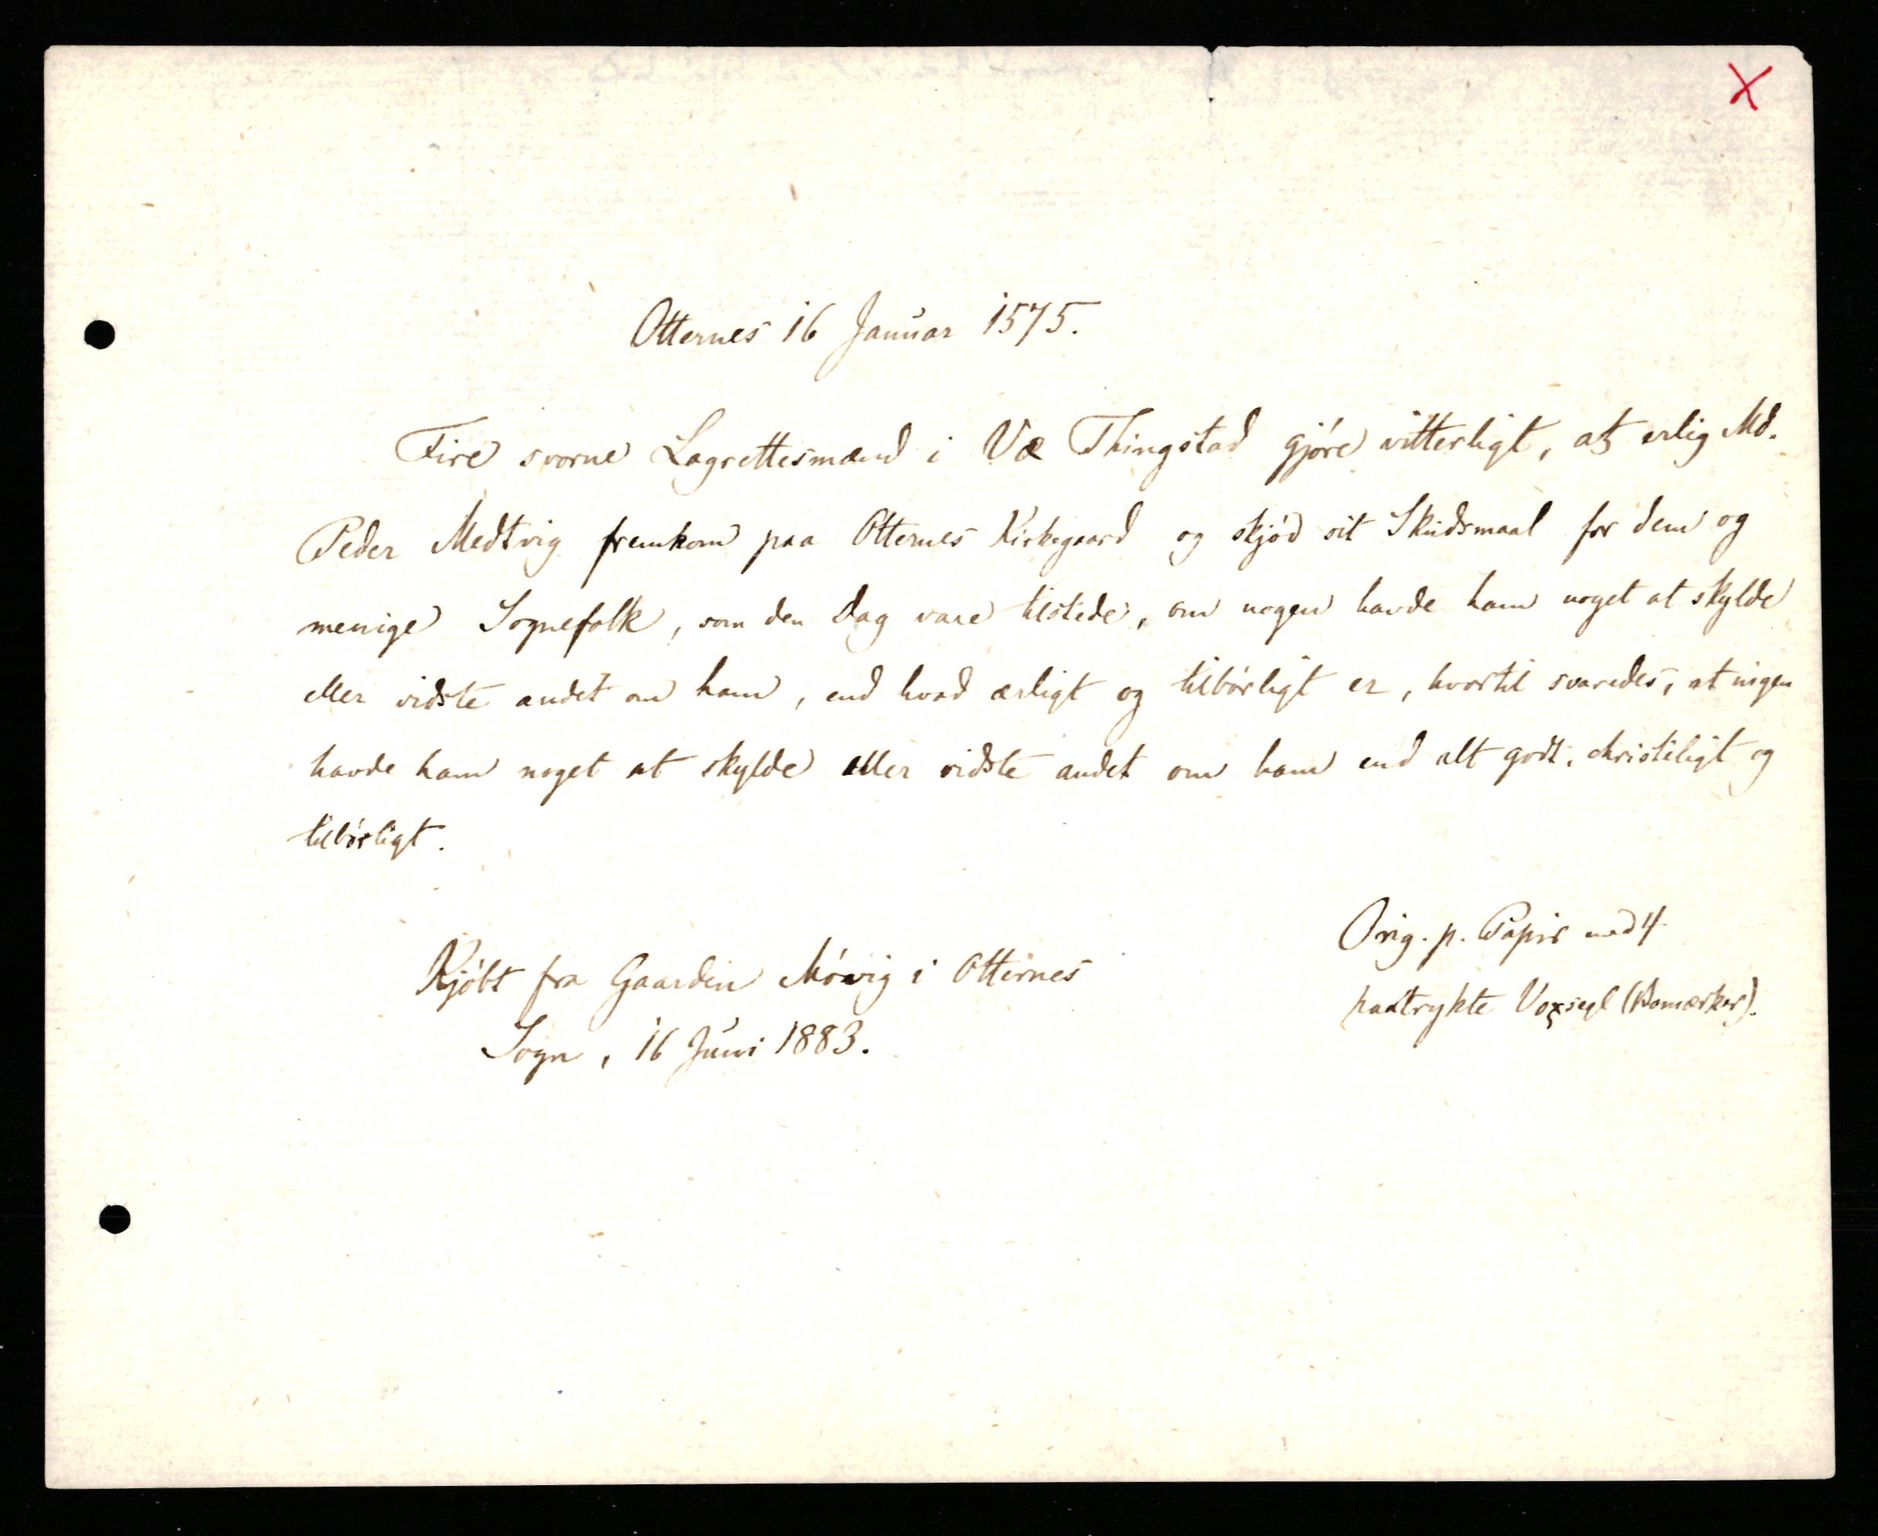 X
Otternes 16 Januar 1575.
Fire svorne Lagrettesmænd i Væ Thingstad gjöre vitterligt, at erlig Md.
Peder Medtvig fremkom paa Otternes Kirkegaard og skjöd sit Skudsmaal for dem og
menige Sognefolk, som den Dag vare tilstede, om nogen havde ham noget at skylde
eller vidste andet om ham, end hvad ærligt og tilbörligt er, hvortil svaredes, at ingen
havde ham noget at skylde eller vidste andet om ham end alt godt, christeligt og
tilbörligt.
Orig. p. Papir med 4
paatrykte Voxsegl (Bomærker).
Kjöbt fra Gaarden Mövig i Otternes
Sogn, 16 Juni 1883.